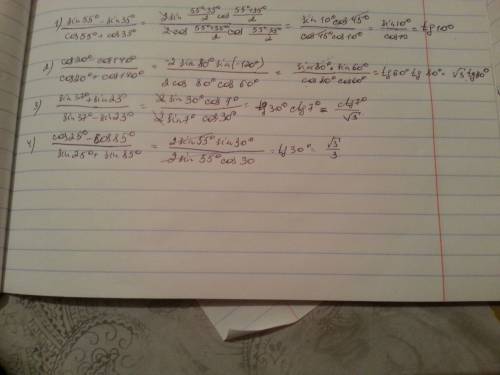 1) (sin 55° − sin 35°)/(cos 55° + cos 35°) = (2 sin (55°−35°)/2 cos (55°+35°)/2)/(2 cos (55°+35°)/2 cos (55°−35°)/2) = (sin 10° cos 45°)/(cos 45° cos 10°) = sin 10°/cos 10 = tg 10°
2) (cos 20° − cos 140°)/(cos 20° + cos 140°) = (−2 sin 80° sin(−120°))/(2 cos 80° cos 60°) = (sin 80° · sin 60°)/(cos 80° cos 60°) = tg 60° tg 80° = √3 tg 80°
3) (sin 37° + sin 23°)/(sin 37° − sin 23°) = (2 sin 30° cos 7°)/(2 sin 7° cos 30°) = tg 30° ctg 7° = ctg 7°/√3
4) (cos 25° − cos 85°)/(sin 25° + sin 85°) = (2 sin 55° sin 30°)/(2 sin 55° cos 30) = tg 30° = √3/3